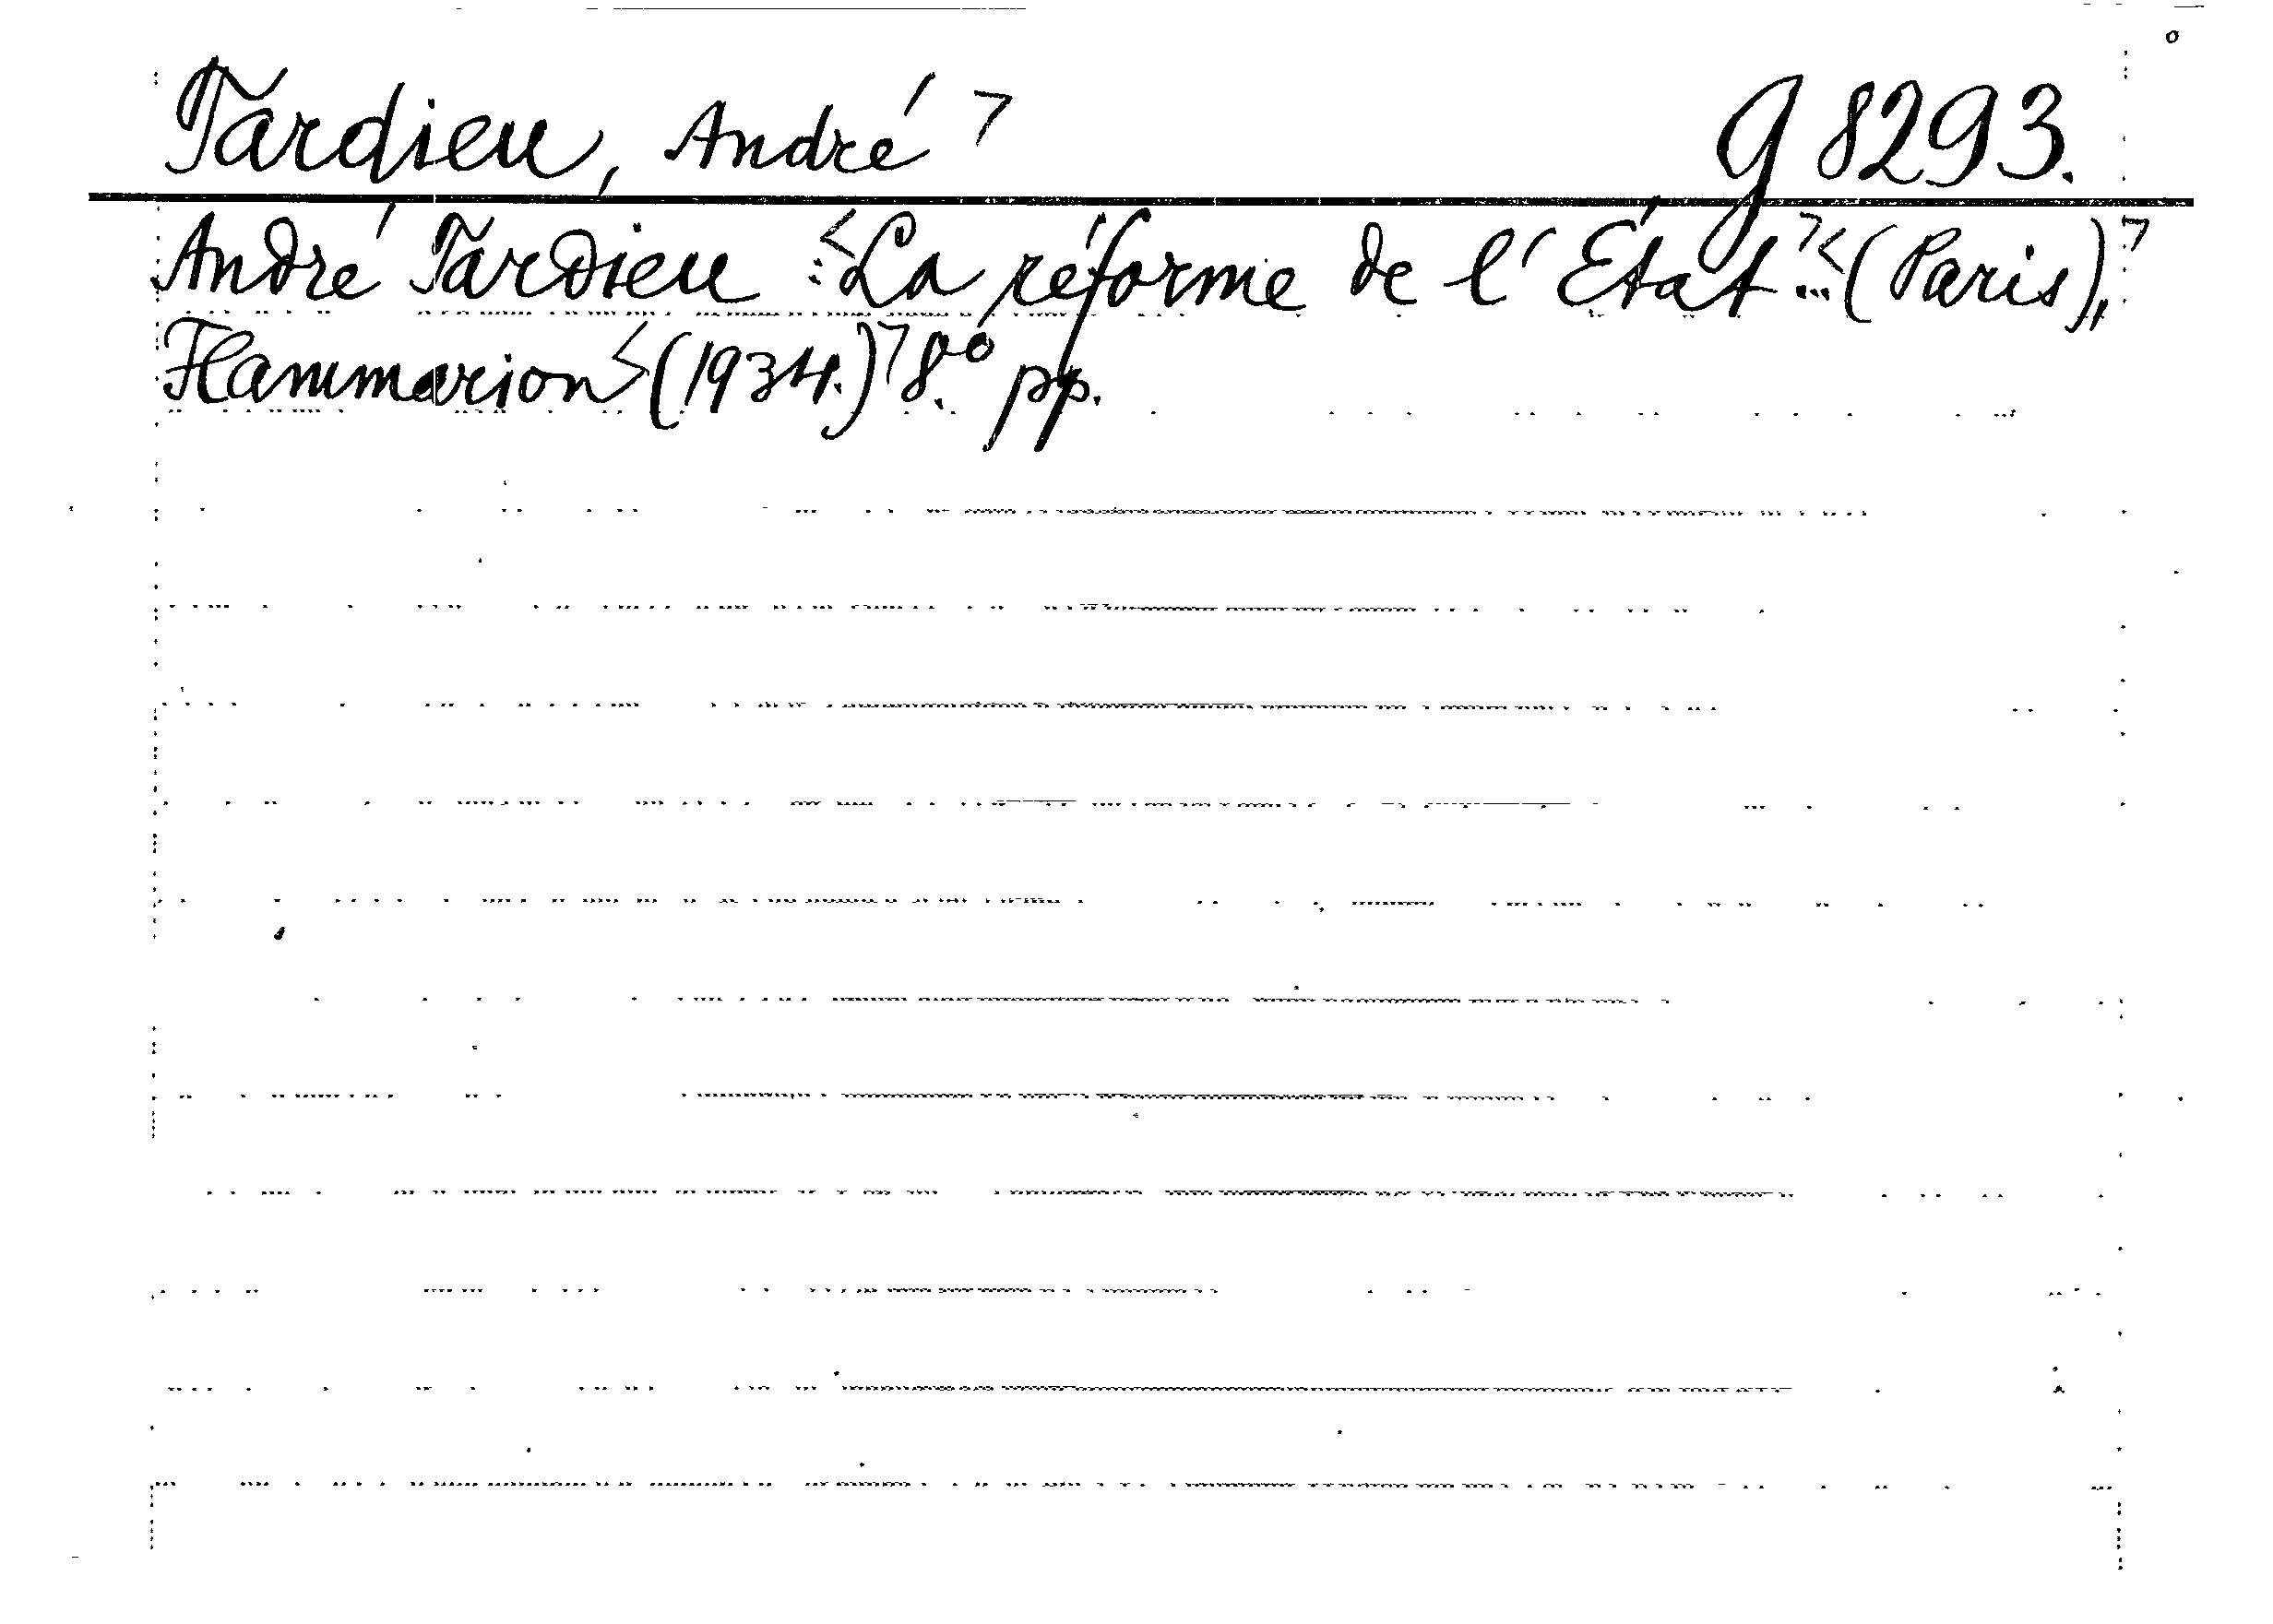 Tardieu, André ⌝ g 8293.
André Tardieu :<La réforme de l'État...⌝<(Paris),⌝
Flammarion <(1934.)⌝ 8.º pp.